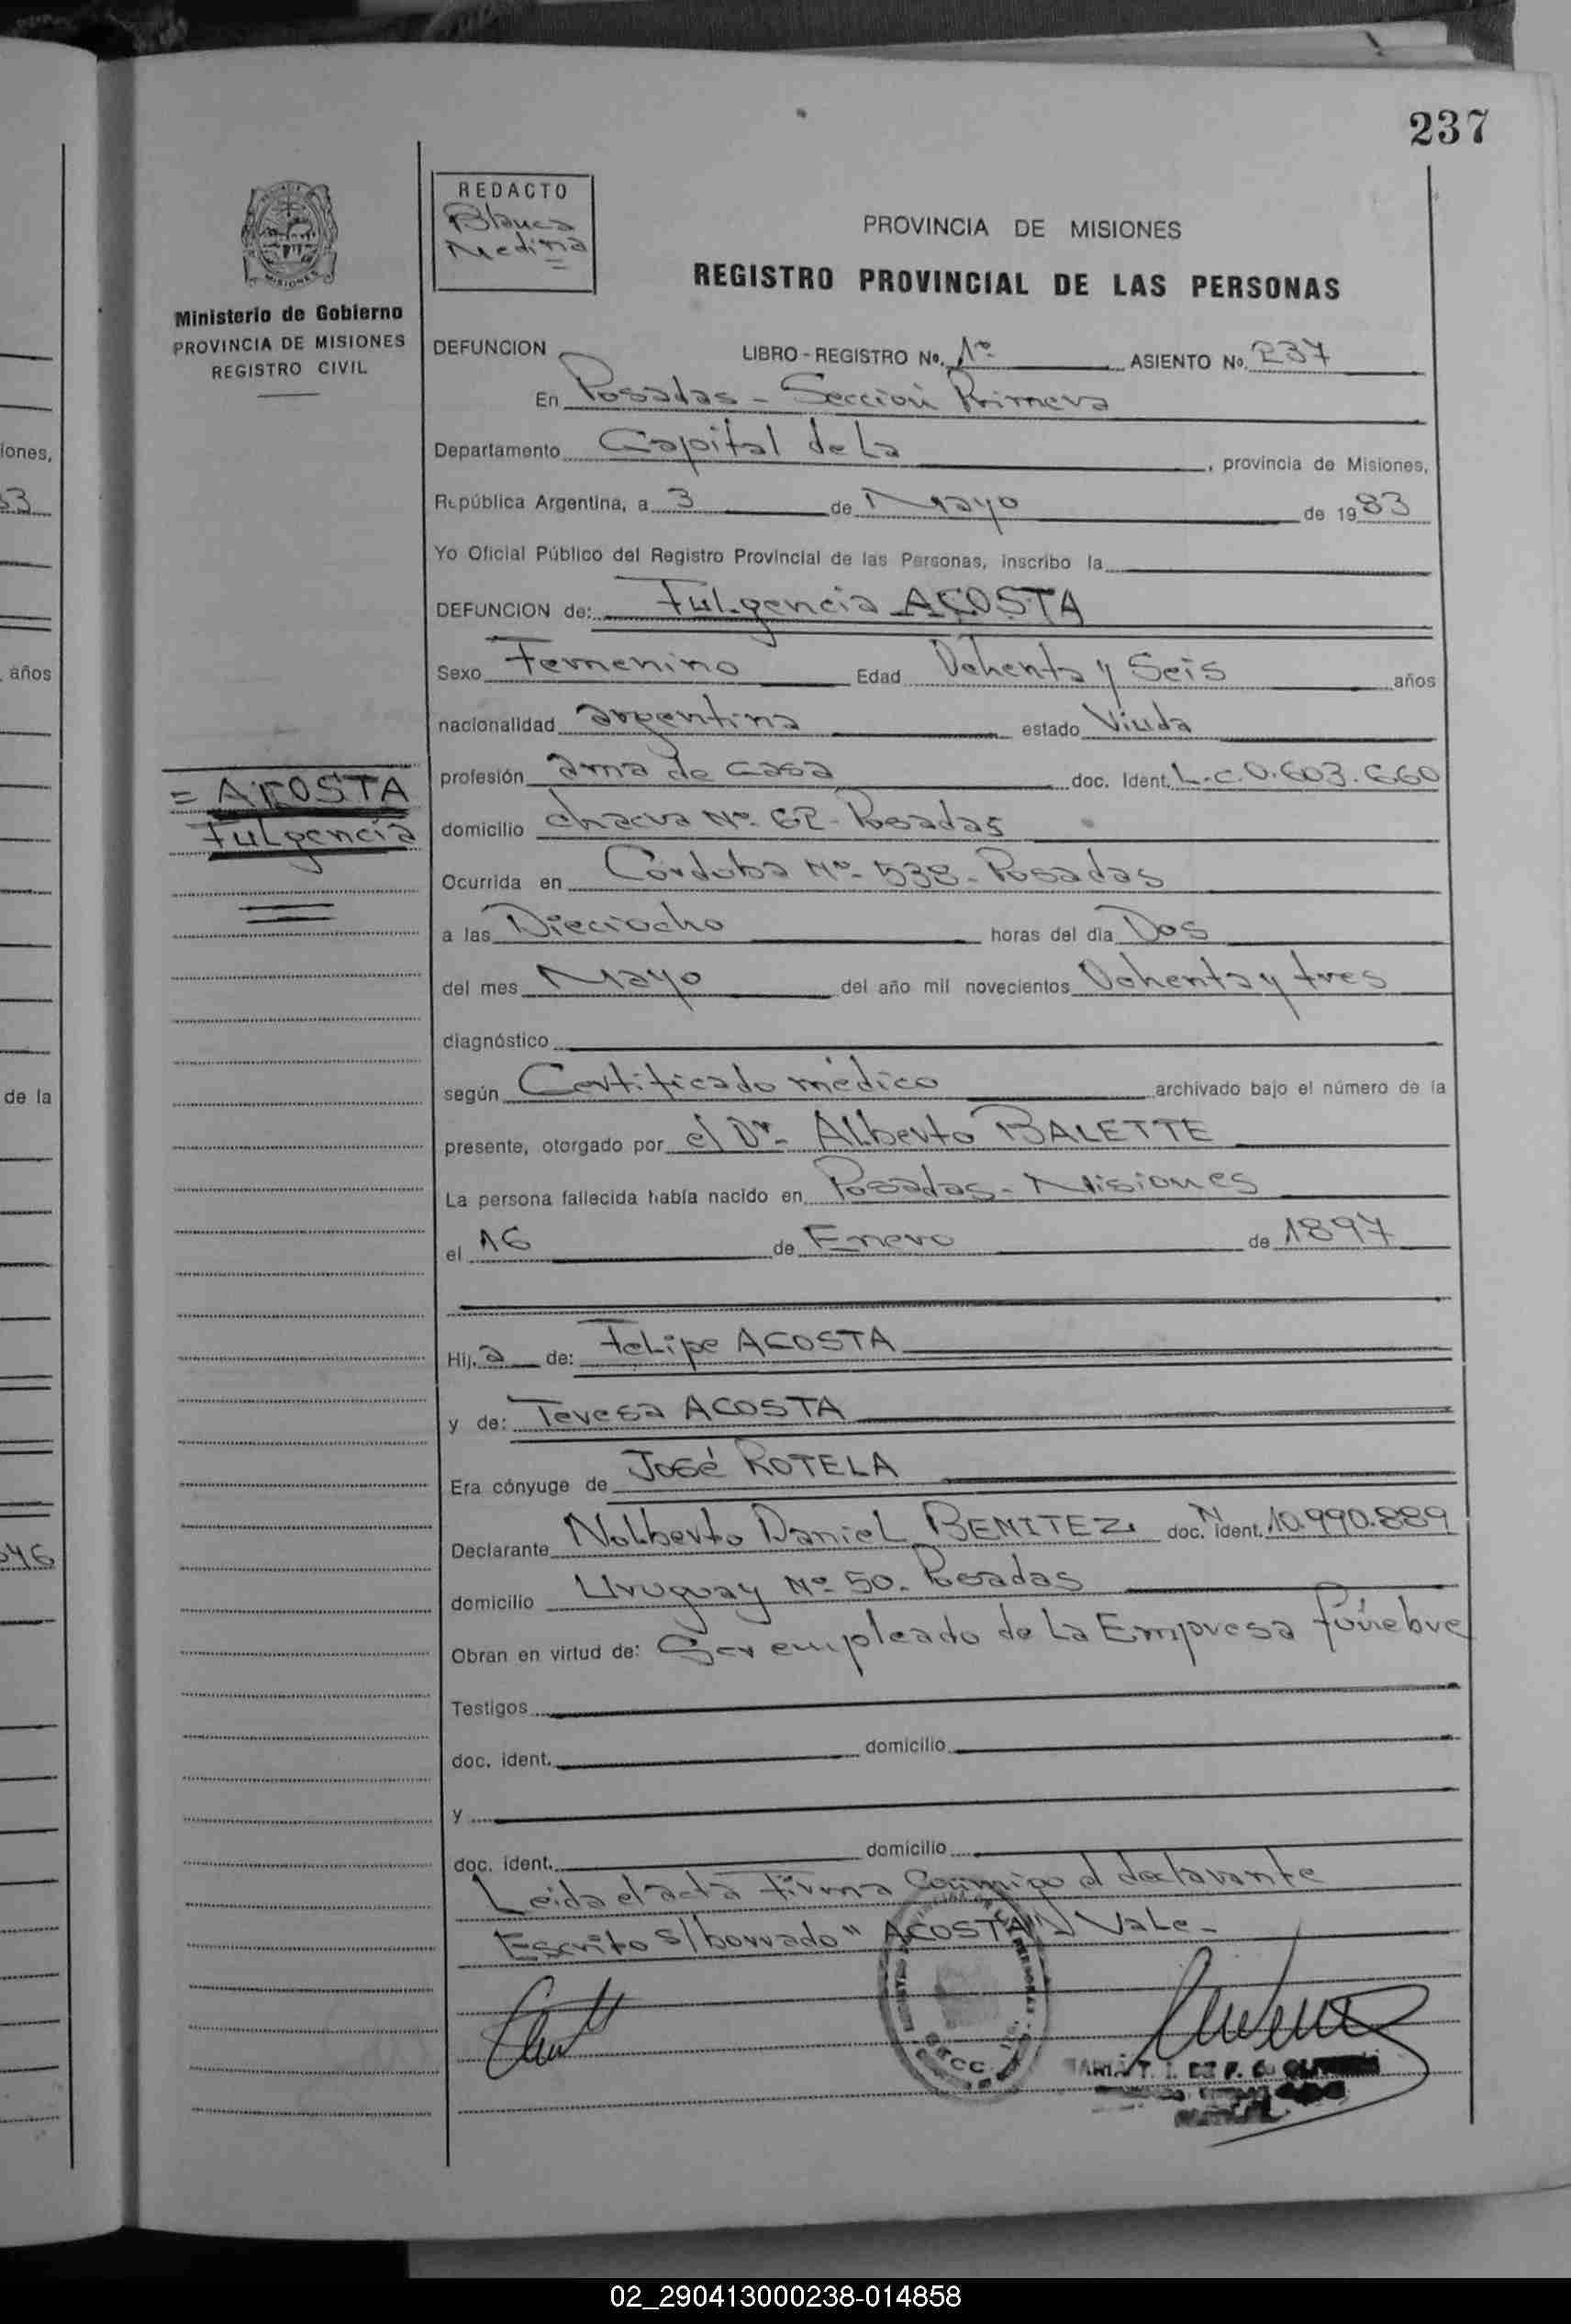 237
REDACTO
Blanca
Medina
MISIONES
Ministerio de Gobierno
PROVINCIA DE MISIONES
REGISTRO CIVIL
PROVINCIA DE MISIONES
REGISTRO PROVINCIAL DE LAS PERSONAS
DEFUNCION LIBRO - REGISTRO No. 1º ASIENTO No. 237
En Posadas - Sección Primera
Departamento Capital de La, provincia de Misiones,
República Argentina, a 3 de Mayo de 1983
Yo Oficial Público del Registro Provincial de las Personas, inscribo la
DEFUNCION de: Fulgencia ACOSTA
Sexo Femenino Edad Ochenta y Seis años
nacionalidad argentina estado Viuda
= ACOSTA
Fulgencia
profesión ama de casa doc. Ident. L.C. 0.603.660
domicilio chacra Nº 62 - Posadas
Ocurrida en Córdoba Nº 538 - Posadas
a las Dieciocho horas del día Dos
del mes Mayo del año mil novecientos Ochenta y tres
diagnóstico
según Certificado médico archivado bajo el número de la
presente, otorgado por el Dr. Alberto BALETTE
La persona fallecida había nacido en Posadas - Misiones
el 16 de Enero de 1897
Hij. a de: Felipe ACOSTA
y de: Teresa ACOSTA
Era cónyuge de José ROTELA
Declarante Nolberto Daniel BENITEZ doc. N ident. 10.990.889
domicilio Uruguay Nº 50. Posadas
Obran en virtud de: Ser empleado de La Empresa fúnebre
Testigos
doc. ident. domicilio
y
doc. ident. domicilio
Leida el acta Firma Conmigo el declarante
Escrito s/borrado "ACOSTA" Vale -
iones,
33
años
de la
046
02_290413000238-014858